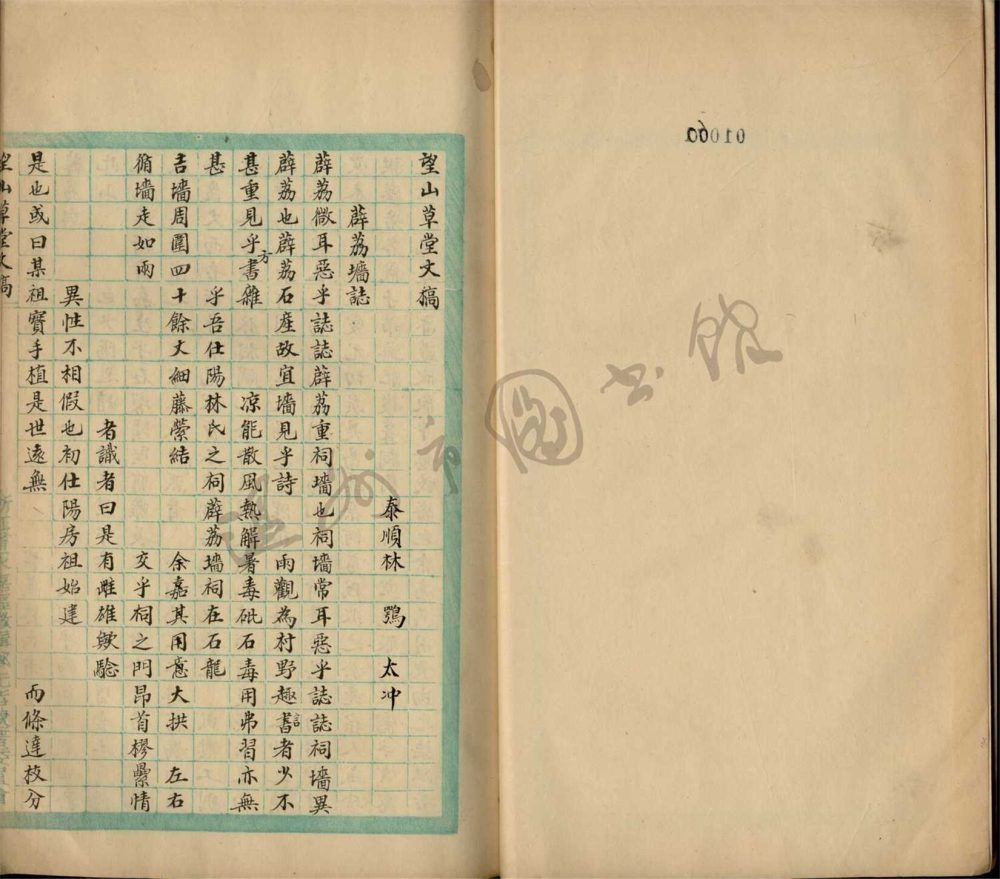 01060
望山草堂文稿
泰順林 鶚 太冲
薜荔墻誌
薜荔微耳惡乎誌誌薜荔重祠墻也祠墻常耳惡乎誌誌祠墻異
薜荔也薜荔石産故宜墻見乎詩 雨觀為村野趣書言者少不
甚重見乎方書雜 凉能散風熱解暑毒砒石毒用弗習亦無
甚 乎吾仕陽林氏之祠薜荔墻祠在石龍
吉墻周圍四十餘丈細藤縈結 余嘉其用意大拱 左右
循墻走如兩 交乎祠之門昂首樛纍情
者識者曰是有雌雄歟騐
異性不相假也初仕陽房祖始建
是也或曰某祖寶手植是世遠無 而條達枝分
望山草堂文稿
溫州市圖書館